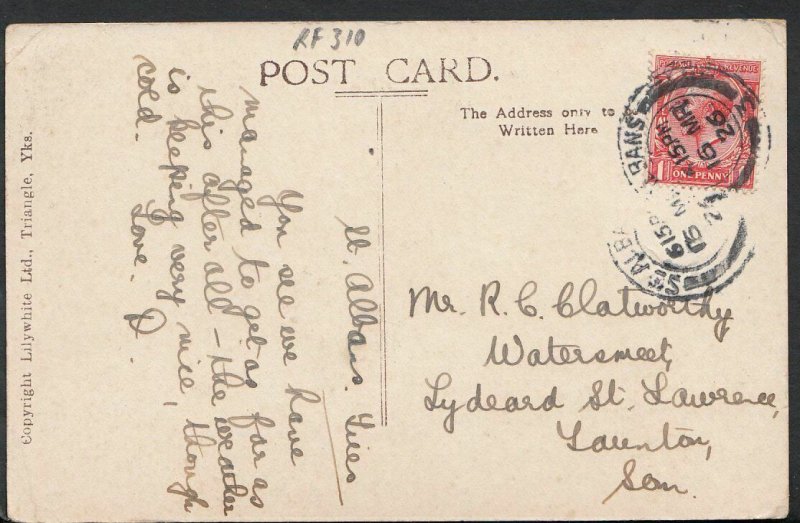 RF 310
POST CARD.
The Address only to
Written Here
St. Albans. Tues
You see we have
managed to get as far as
this after all – the weather
is keeping very nice, though
cold.
Love. D.
Mr. R. C. Clatworthy
Watersmeet,
Lydeard St. Lawrence,
Taunton,
Som.
Copyright Lilywhite Ltd., Triangle, Yks.
REVENUE
ONE PENNY
ST ALBANS
6 15 PM
16 MR
26